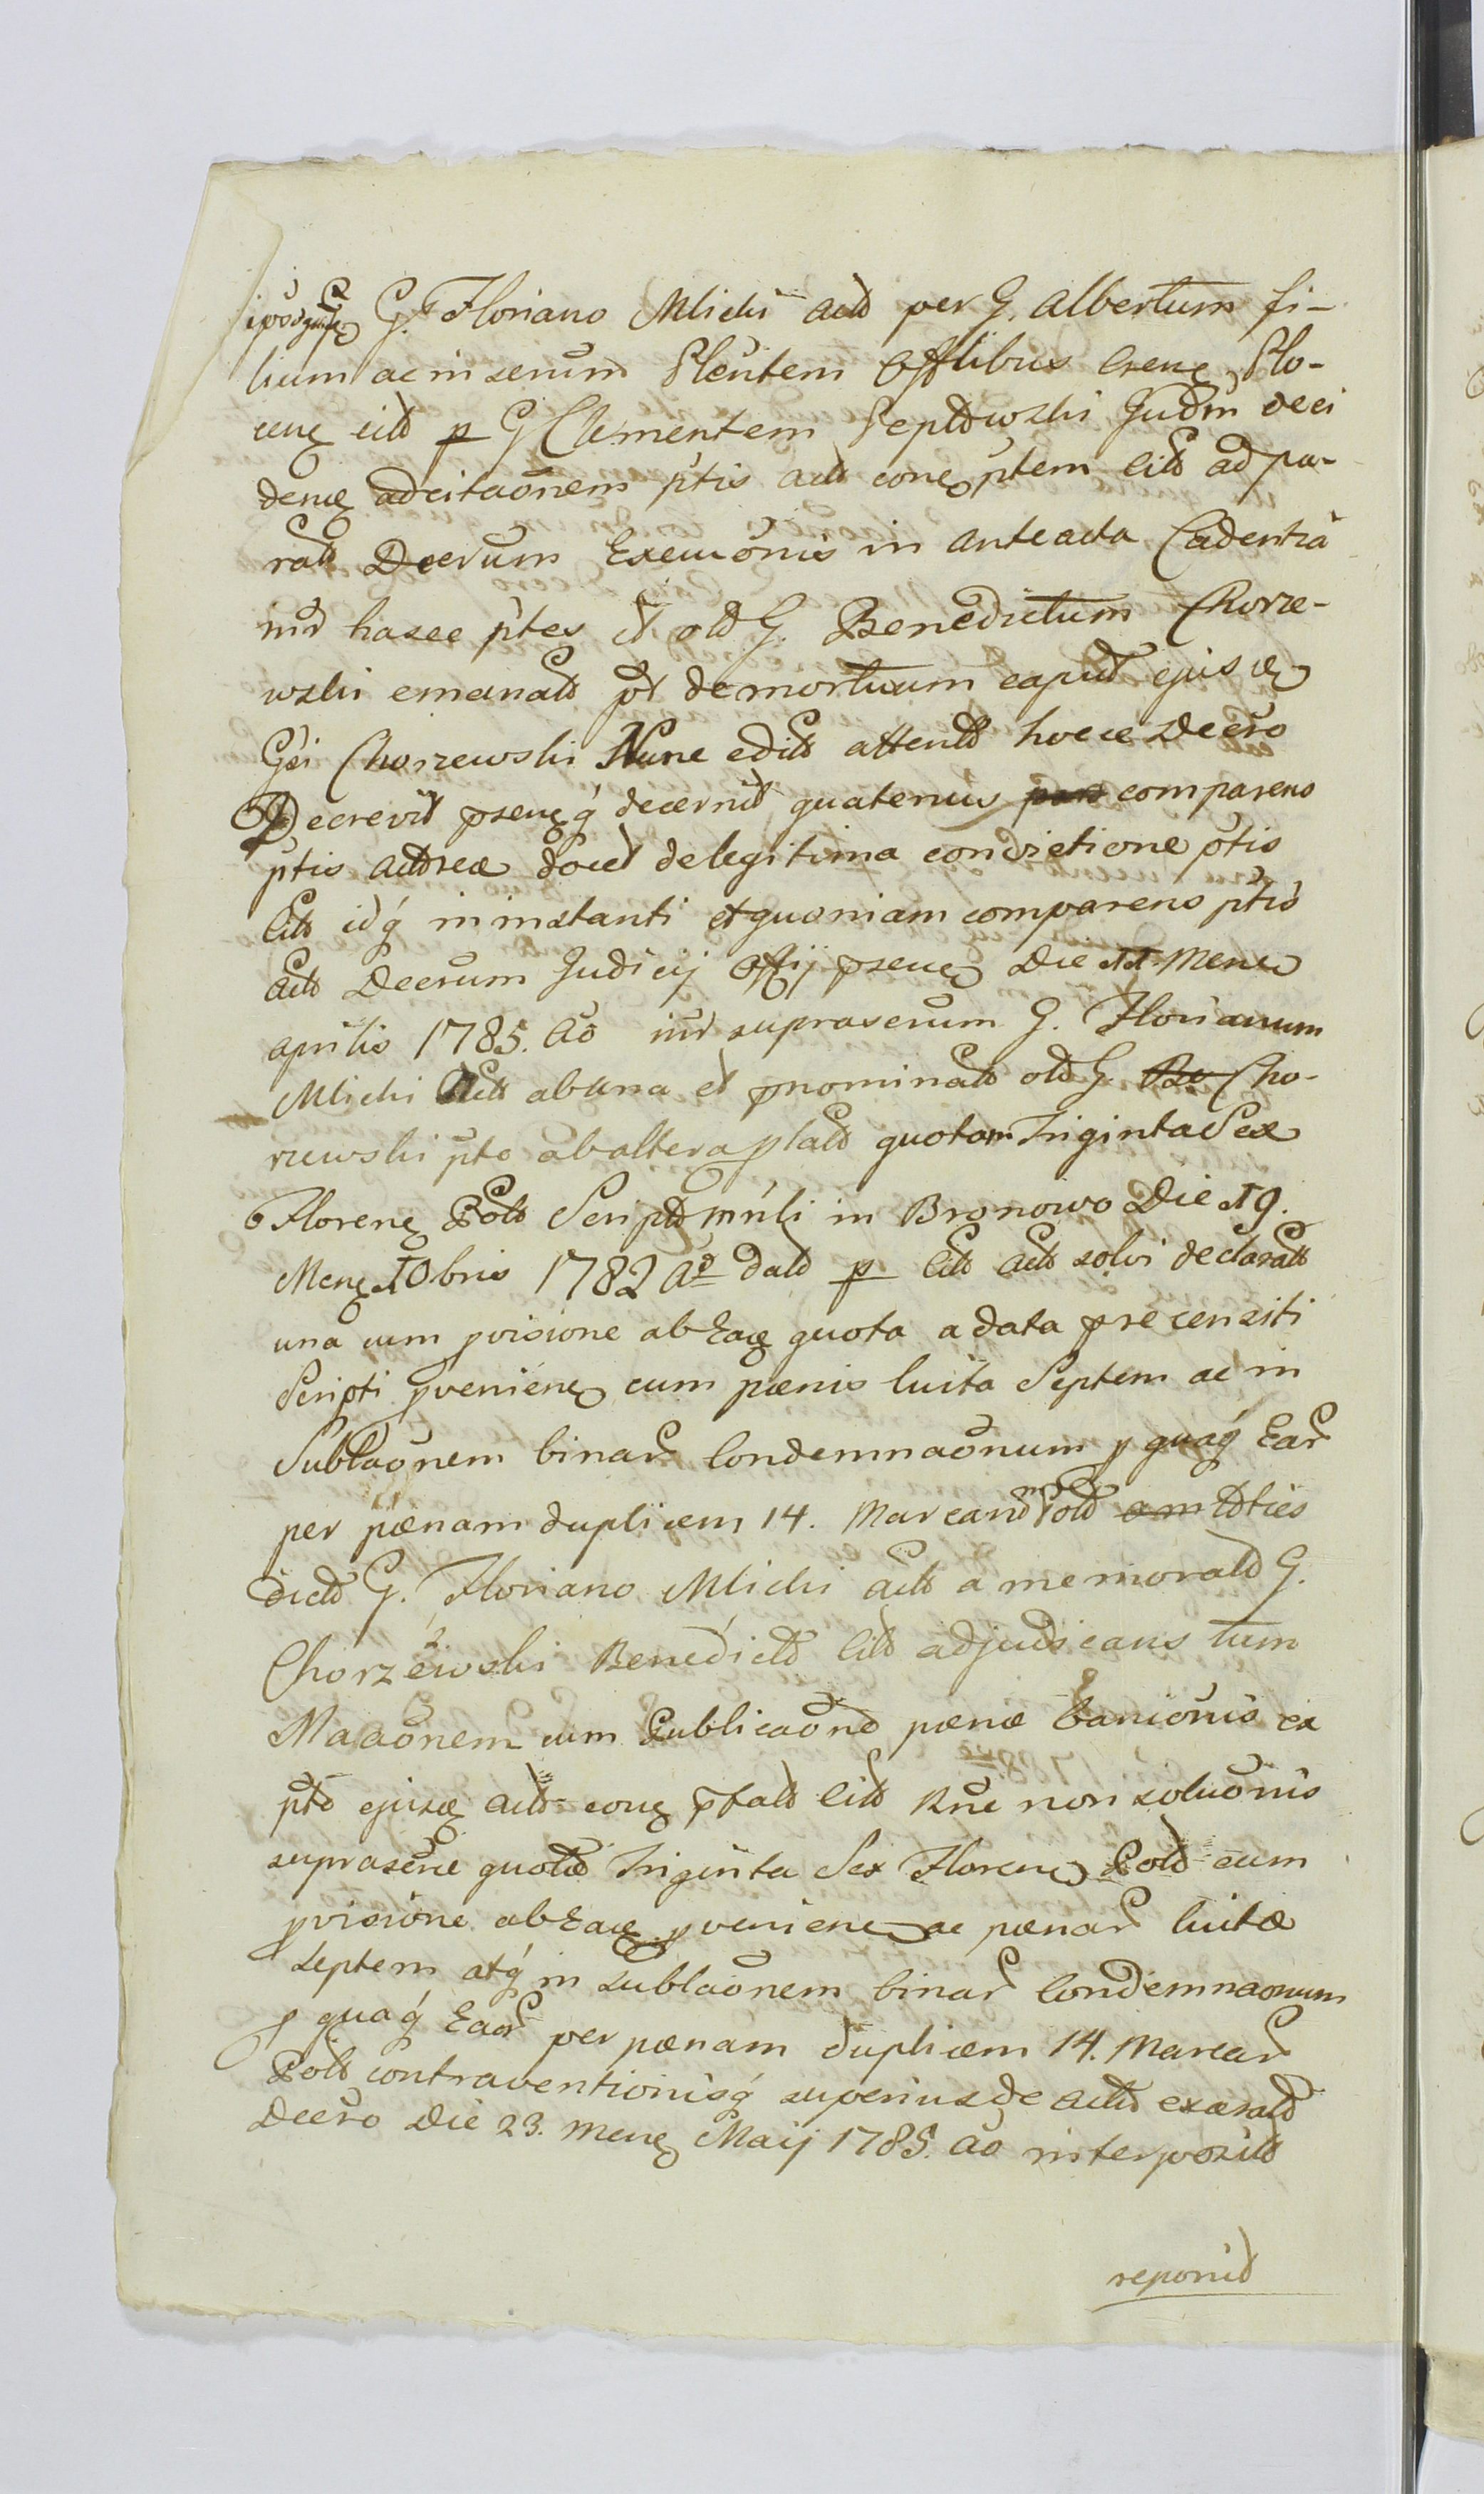 G. Floriano Mlicki Actt per G. Albertum fi-
lium ac in scrum Plentem Offlibus Crenę Plo-
cenę citt p G Clementem Judm deci
denę adcitaonem ptis Actt conę ptem Citt ad pa-
ratt Decrum Exemonis in anteacta Cadentia
intr hasce ptes et old G. Benedictum Chorze-
wski emanatt pt demortuum caput ejusdę
Gsi Chorzewski Nunc editt attentt hocce Decro
Decrevit psenę q decernit quatenus comparens
ptis Actoreæ docet de legitima convictione ptis
Citt idq in instanti et quoniam comparens ptis
Actt Decrum Judicij Offij psenę Die 11. Mensę
Aprilis 1785. Ao intr suprascrum G. Florianum
Mlicki Actt ab una et pnominatt old G. Cho-
rzewski pto ab altera platt quotam Triginta Sex
Florenę Poltt Scriptt mnli in Bronowo Die 19.
Menę 10bris 1782 Ao datt p Citt Actt solvi declaratt
una cum pvisione ab Eaę quota a data precensiti
Scripti pvenienę cum pænis luita Septem ac in
Sublaonem binar Condemnaonum p quaq Ear
per pænam duplicem 14. Marcar Poltt toties
dictt G. Floriano Mlicki Actt a memoratt G.
Chorzewski Benedictt Citt adjudicans tum
cum Publicaone pænæ banionis ex
pto ejusdę Actt conę pfatt Citt Rne non soluonis
suprascræ quotæ Triginta Sex Florenę Poltt cum
pvisione ab Eaę pvenienę ac pænar luitæ
septem atq in sublaonem binar Condemnaonum
p quaq Ear per pænam duplicem 14. Marcar
Poltt contraventionisq superius de actu exaratt
Decro Die 23. Menę Maij 1785. Ao interpositt
reponit